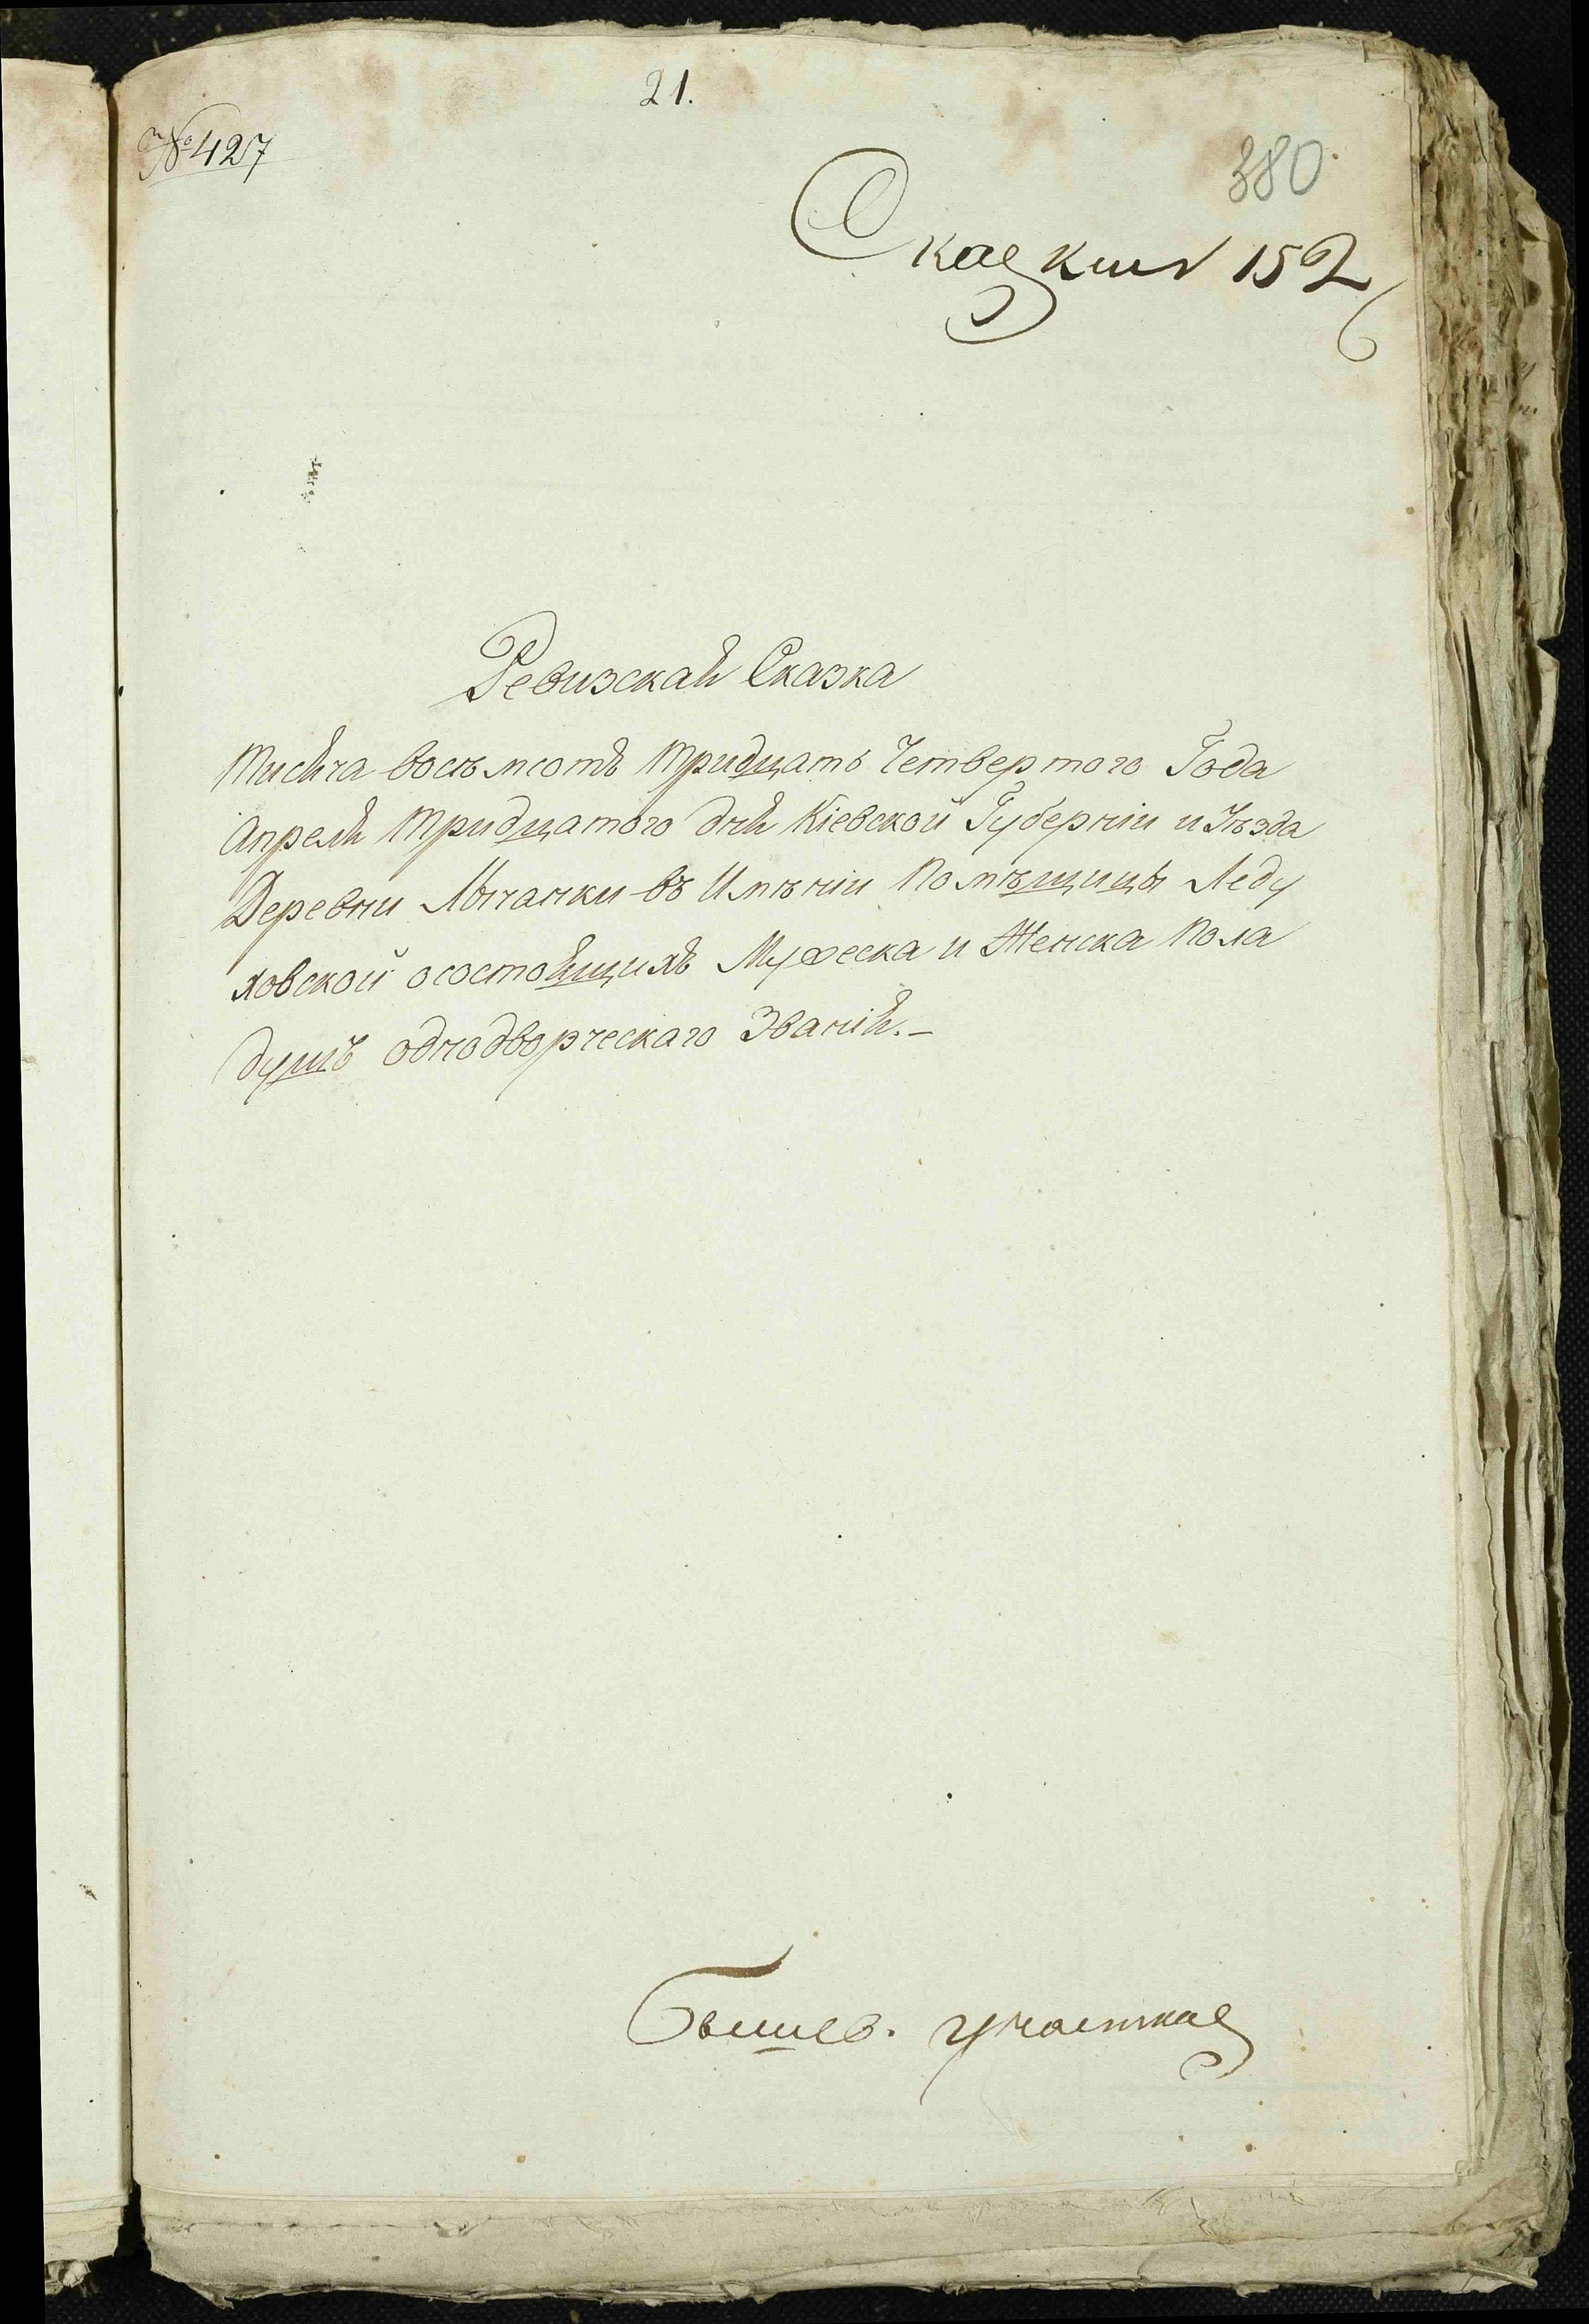 21.
№ 427
380
Сказки 152
Ревизская Сказка
Тисяча восѣмсотъ тридцатъ Четвертого Года
Апреля тридцатого дня Кіевской Губерніи и Уѣзда
Деревни Лычанки въ Имѣніи Помѣщицы Леду
ховской осостоящихъ Мужеска и Женска Пола
душъ однодворческаго Званія.—
Бышев. участка